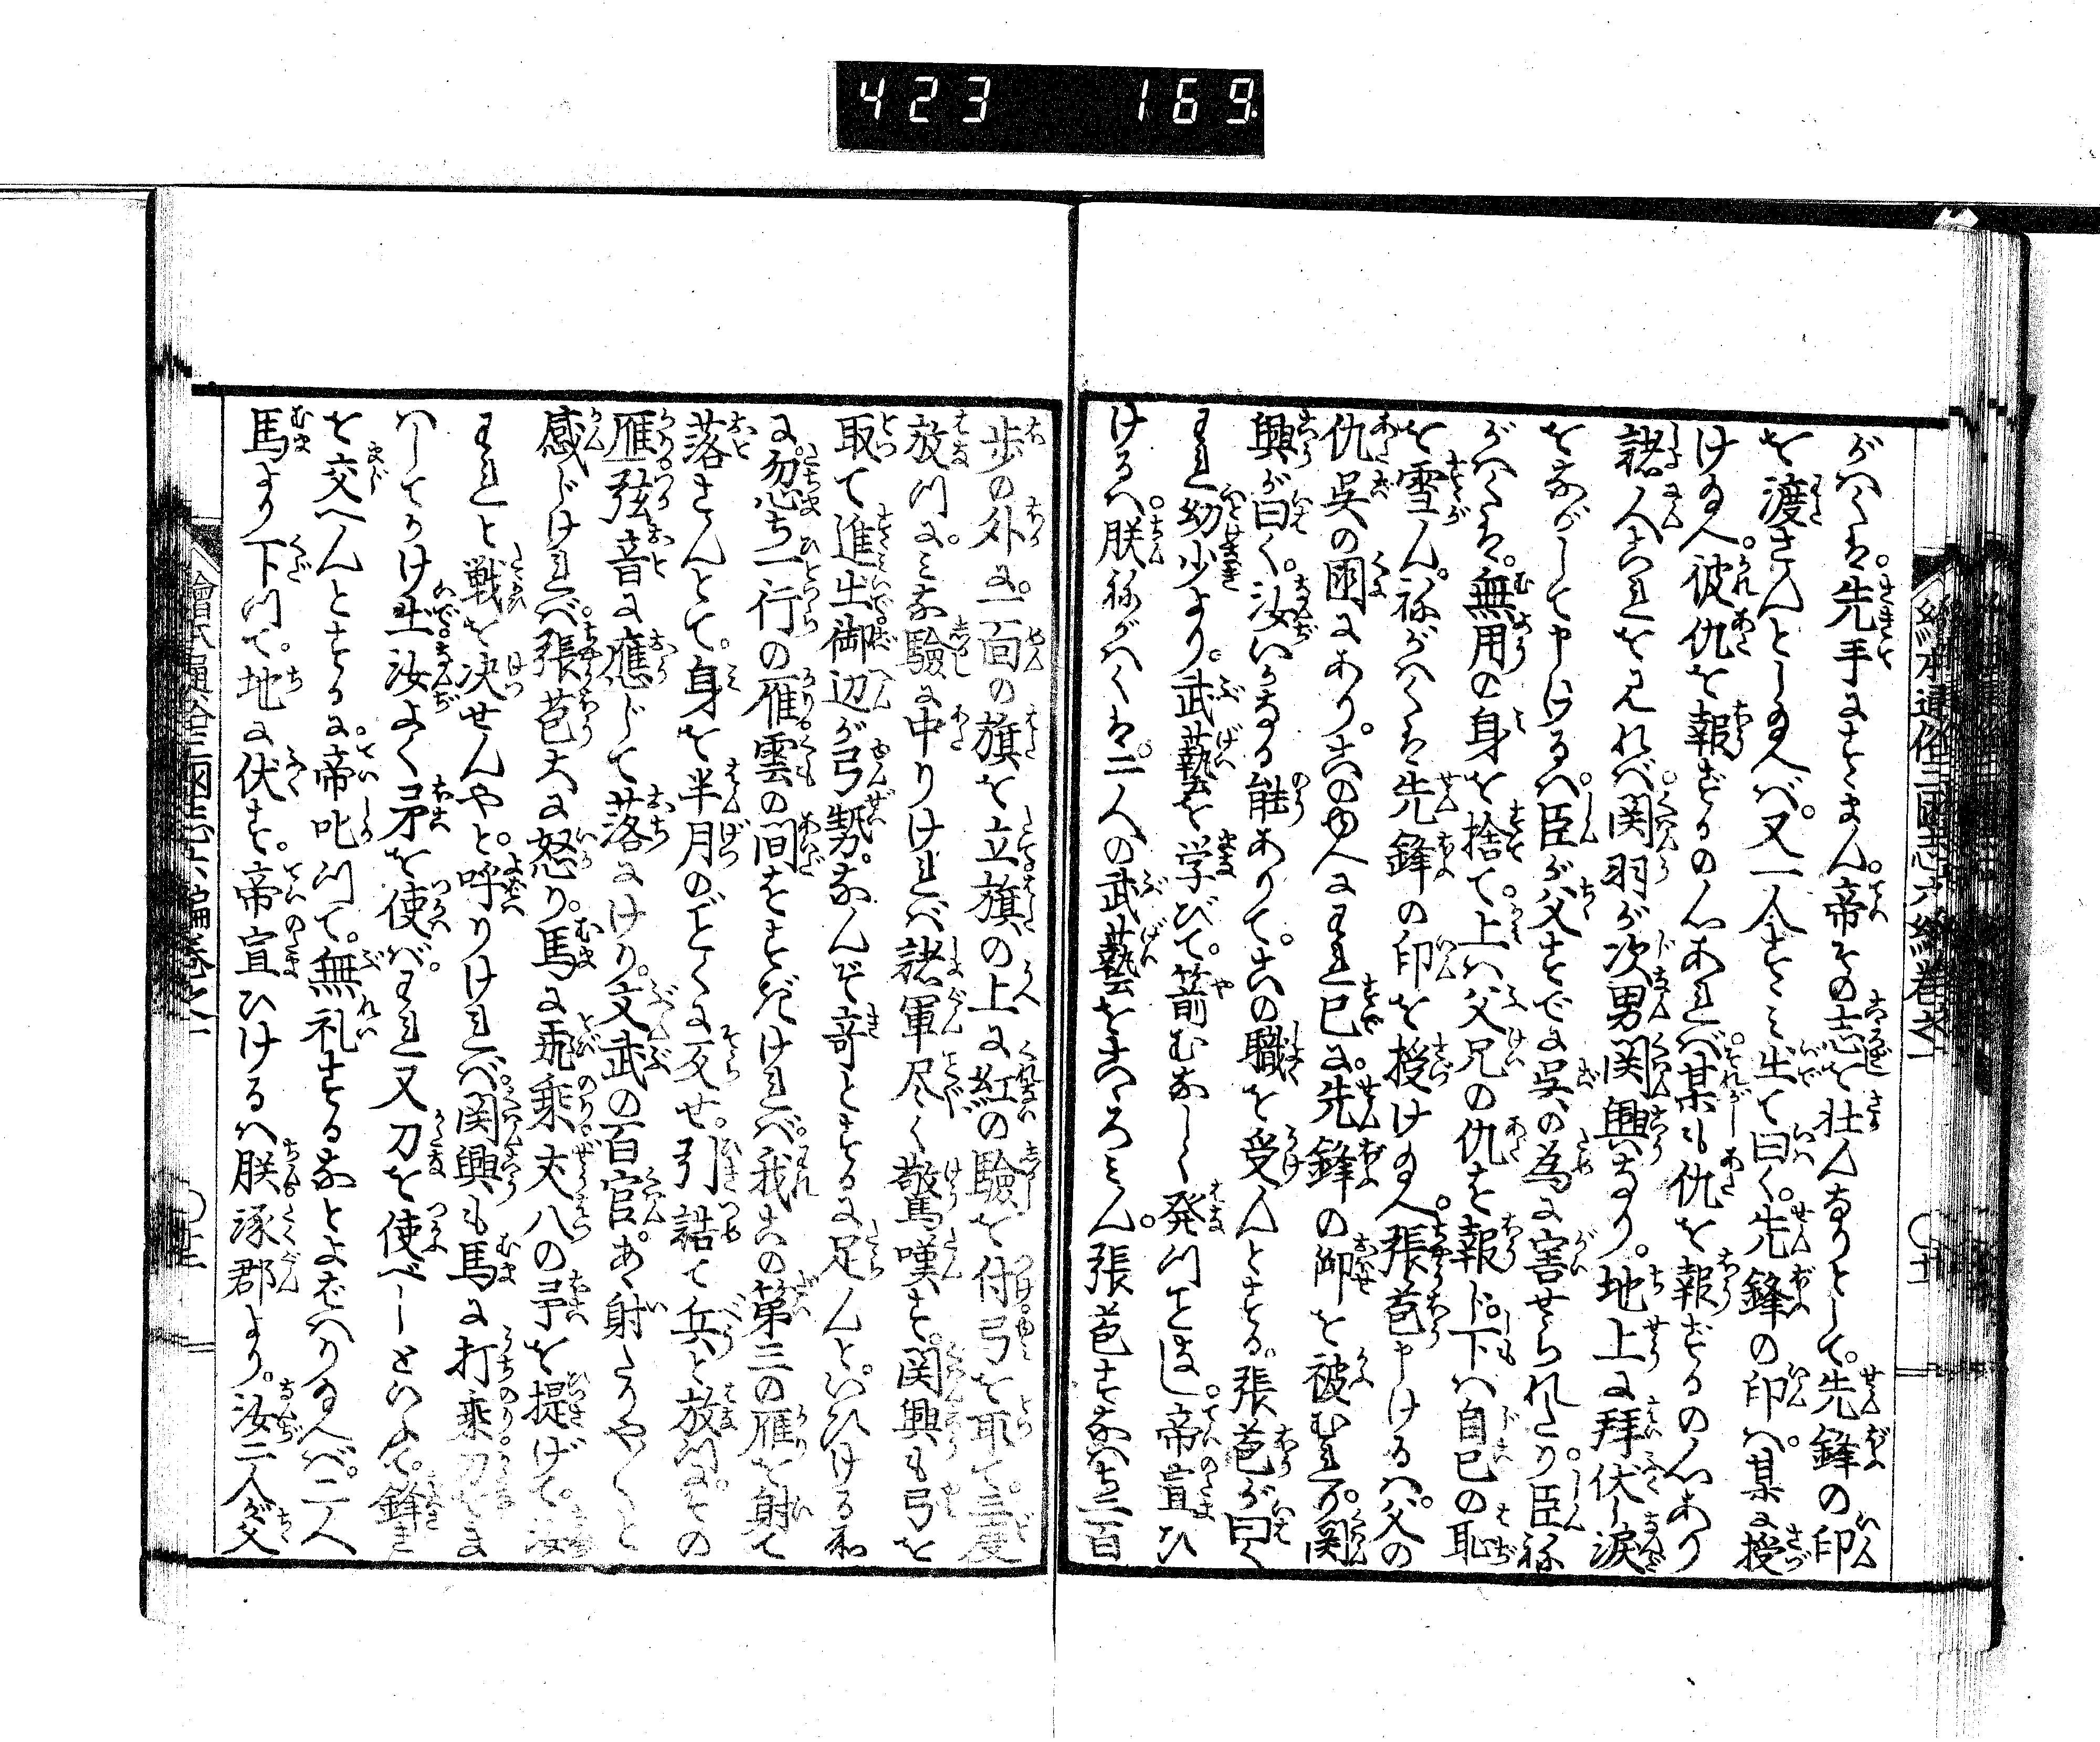 423 169
繪本通俗三國志六編卷之一
がはくは。先手にすゝまん。帝その志を壮んなりとして。先鋒の印
を渡さんとし給へバ。又一人すゝミ出て曰く。先鋒の印ハ。某に授
け給へ。彼仇を報ずるの心あれバ。某も仇を報ずるの心あり
諸人これを見れバ。関羽が次男関興なり。地上に拜伏し涙
をながして申しけるハ。臣が父すでに呉の為に害せられたり。臣ね
がハくは。無用の身を捨て。上ハ父兄の仇を報ト。下ハ自己の恥
を雪ん。ねがハくは先鋒の印を授け給へ。張苞申けるハ。父の
仇呉の国にあり。このゆへにわれ已に。先鋒の御を被むれり。関
興が曰く。汝いかなる能ありて。この職を受んとする。張苞が曰く
われ幼少より。武藝を学びて。箭むなしく発つことなし。帝宣ひ
けるハ。朕ねがハくは。二人の武藝をこゝろミん。張苞すなハち三百
歩の外に。一面の旗を立旗の上に紅の驗を付弓を取て。三度
放つに。ミな驗に中りけれバ諸軍尽く驚嘆す。関興も弓を
取て進出御辺が弓勢。なんぞ奇とするに足んと。いひける和
に。忽ち一行の雁雲の間をすぎけれバ。我この第三の雁を射て
落さんとて。身を半月のごとくに反せ。引詰て兵と放つに。その
雁弦音に應じて落にけり。文武の百官。あゝ射たりやと
感じけれバ。張苞大に怒り。馬に飛乗丈八の矛を提げて。汝
われと戦を决せんやと。呼りけれバ。関興も馬に打乗刀をま
ハしてかけ出汝よく矛を使バ。われ又刀を使べしといふて。鋒き
を交へんとするに。帝叱つて。無礼するなとよばハり給へバ。二人
馬より下つて。地に伏す。帝宣ひけるハ朕涿郡より。汝二人が父
繪本通俗三國志六編卷之一